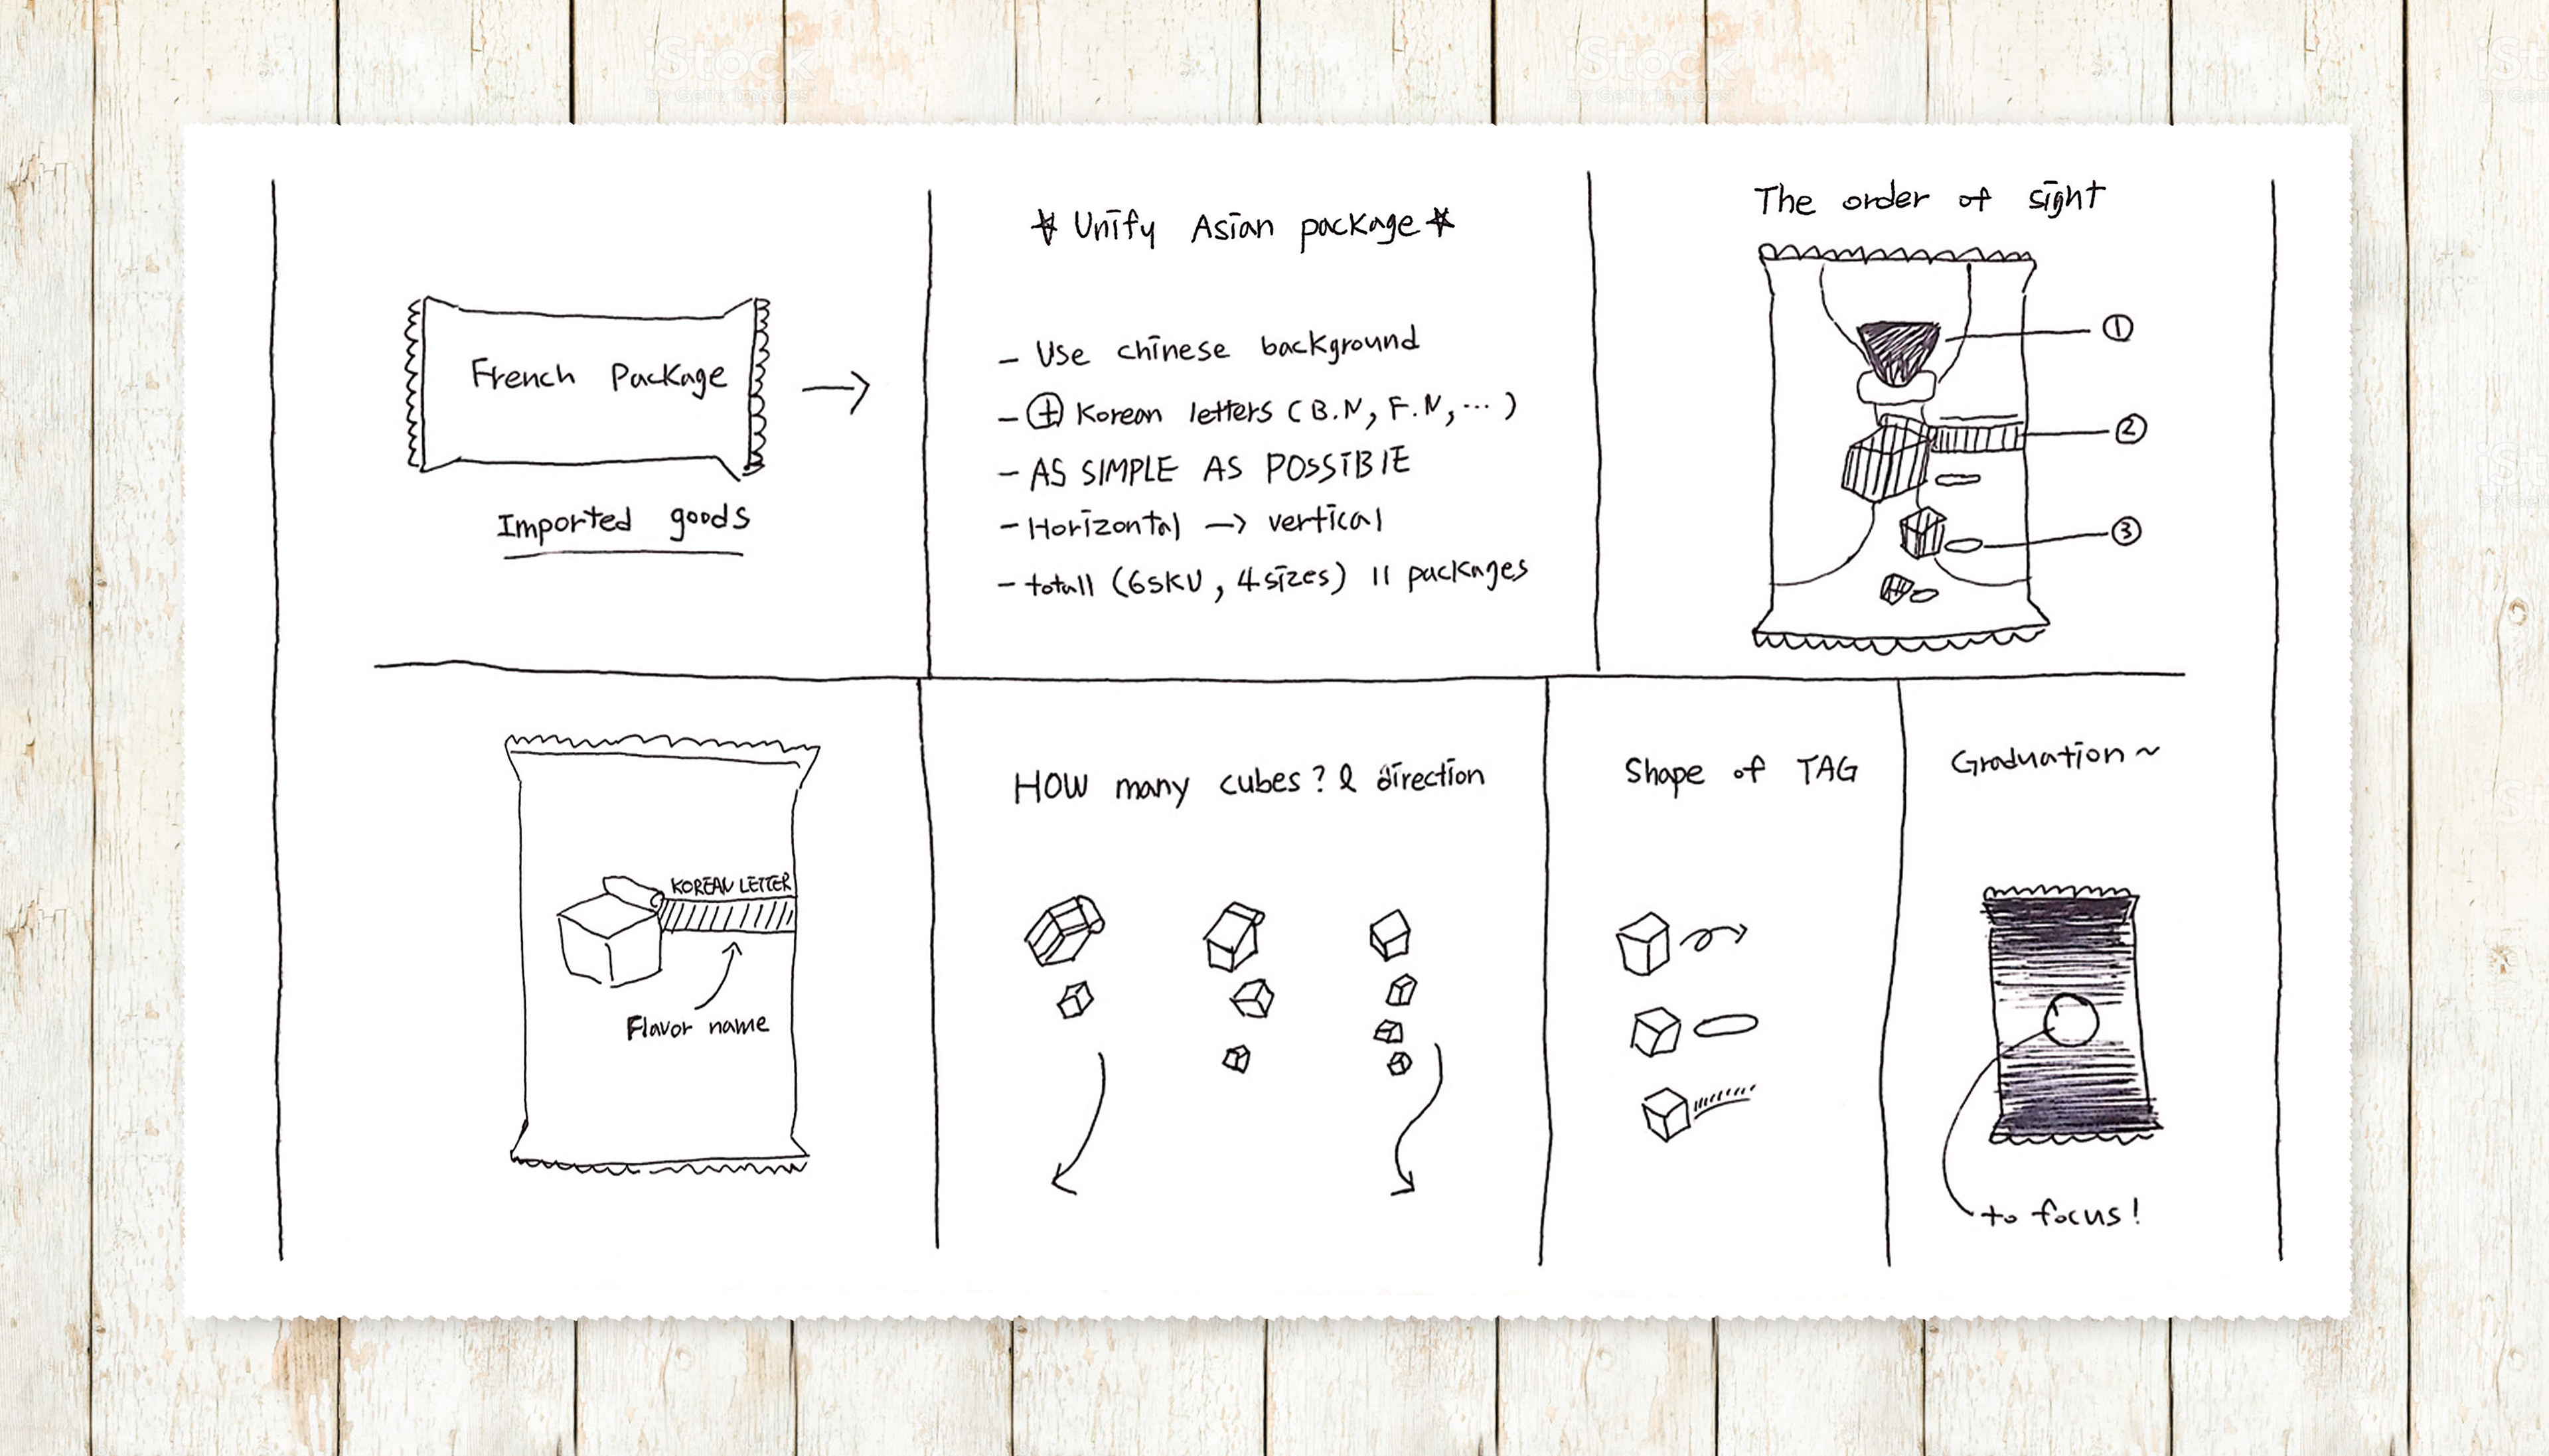 French Package
Imported goods
Unify Asian package
- Use chinese background
- + Korean letters (B.N, F.N, ... )
- AS SIMPLE AS POSSIBIE
- Horizontal → vertical
- totall (6SKU, 4sizes) 11 packages
The order of sight
①
②
③
KOREAN LETTER
Flavor name
HOW many cubes? & direction
Shape of TAG
Graduation ~
to focus!
iStock
by Getty Images
iStock
by Getty Images